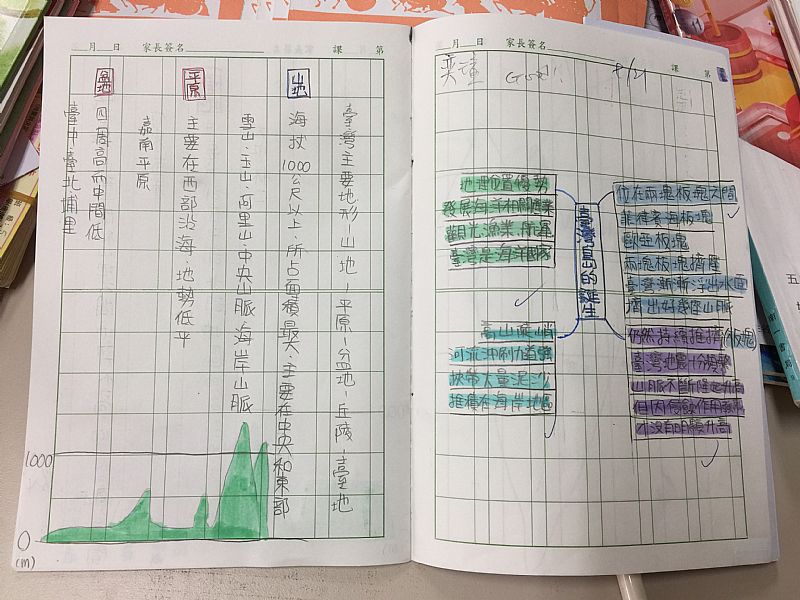 第 課 家長簽名 月 日
臺灣主要地形-山地-平原-盆地-丘陵-臺地
山地
海拔1000公尺以上,所占面積最大,主要在中央和東部
雪山、玉山、阿里山、中央山脈、海岸山脈
平原
主要在西部沿海,地勢低平
嘉南平原
盆地
四周高而中間低
臺中臺北埔里
1000
0
(m)
第 課 家長簽名 月 日
Good!!
臺灣島的誕生
位在兩塊板塊之間
菲律賓海板塊
歐亞板塊
兩塊板塊擠壓
臺灣漸漸浮出水面
擠出好幾座山脈
仍然持續推擠(板塊)
臺灣地震十分頻繁
山脈不斷隆起升高
但因侵蝕作用
才沒有明顯升高
地理位置優勢
發展海洋相關產業
觀光、漁業、航運
臺灣是海洋國家
高山陡峭
河流沖刷力道強
挾帶大量泥沙
堆積在海岸地區